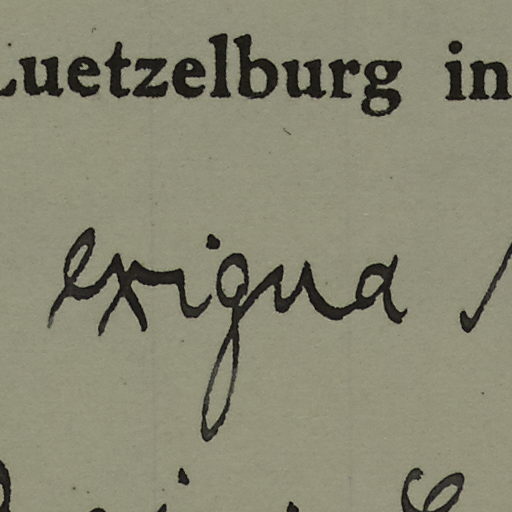 Luetzelburg in
exigua